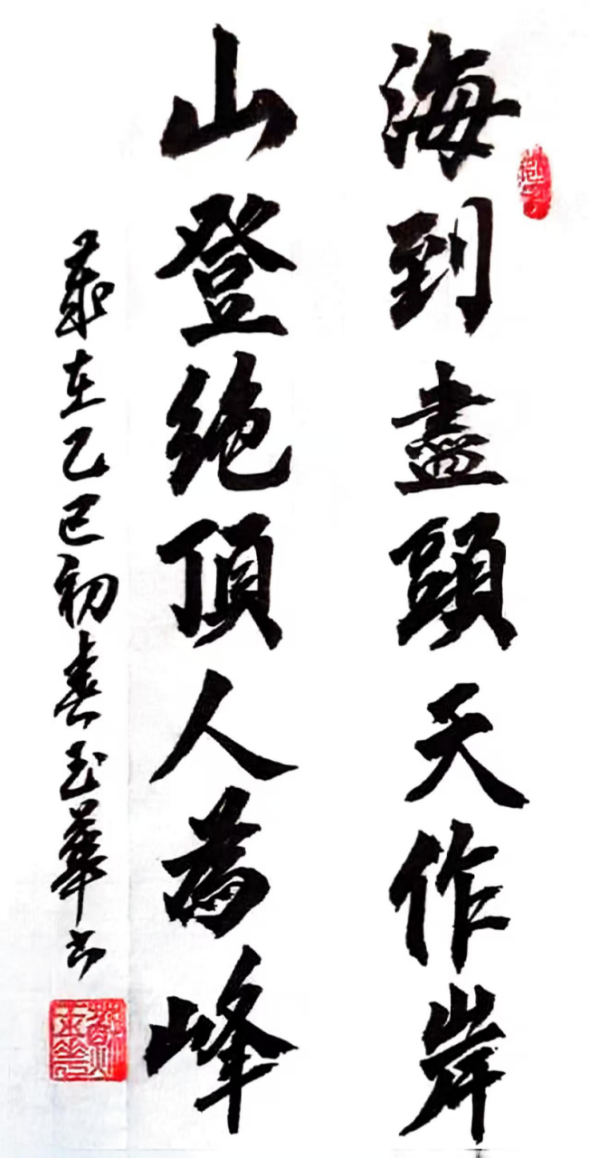 海到盡頭天作岸
山登絶頂人為峰
歲在乙巳初春玉華书